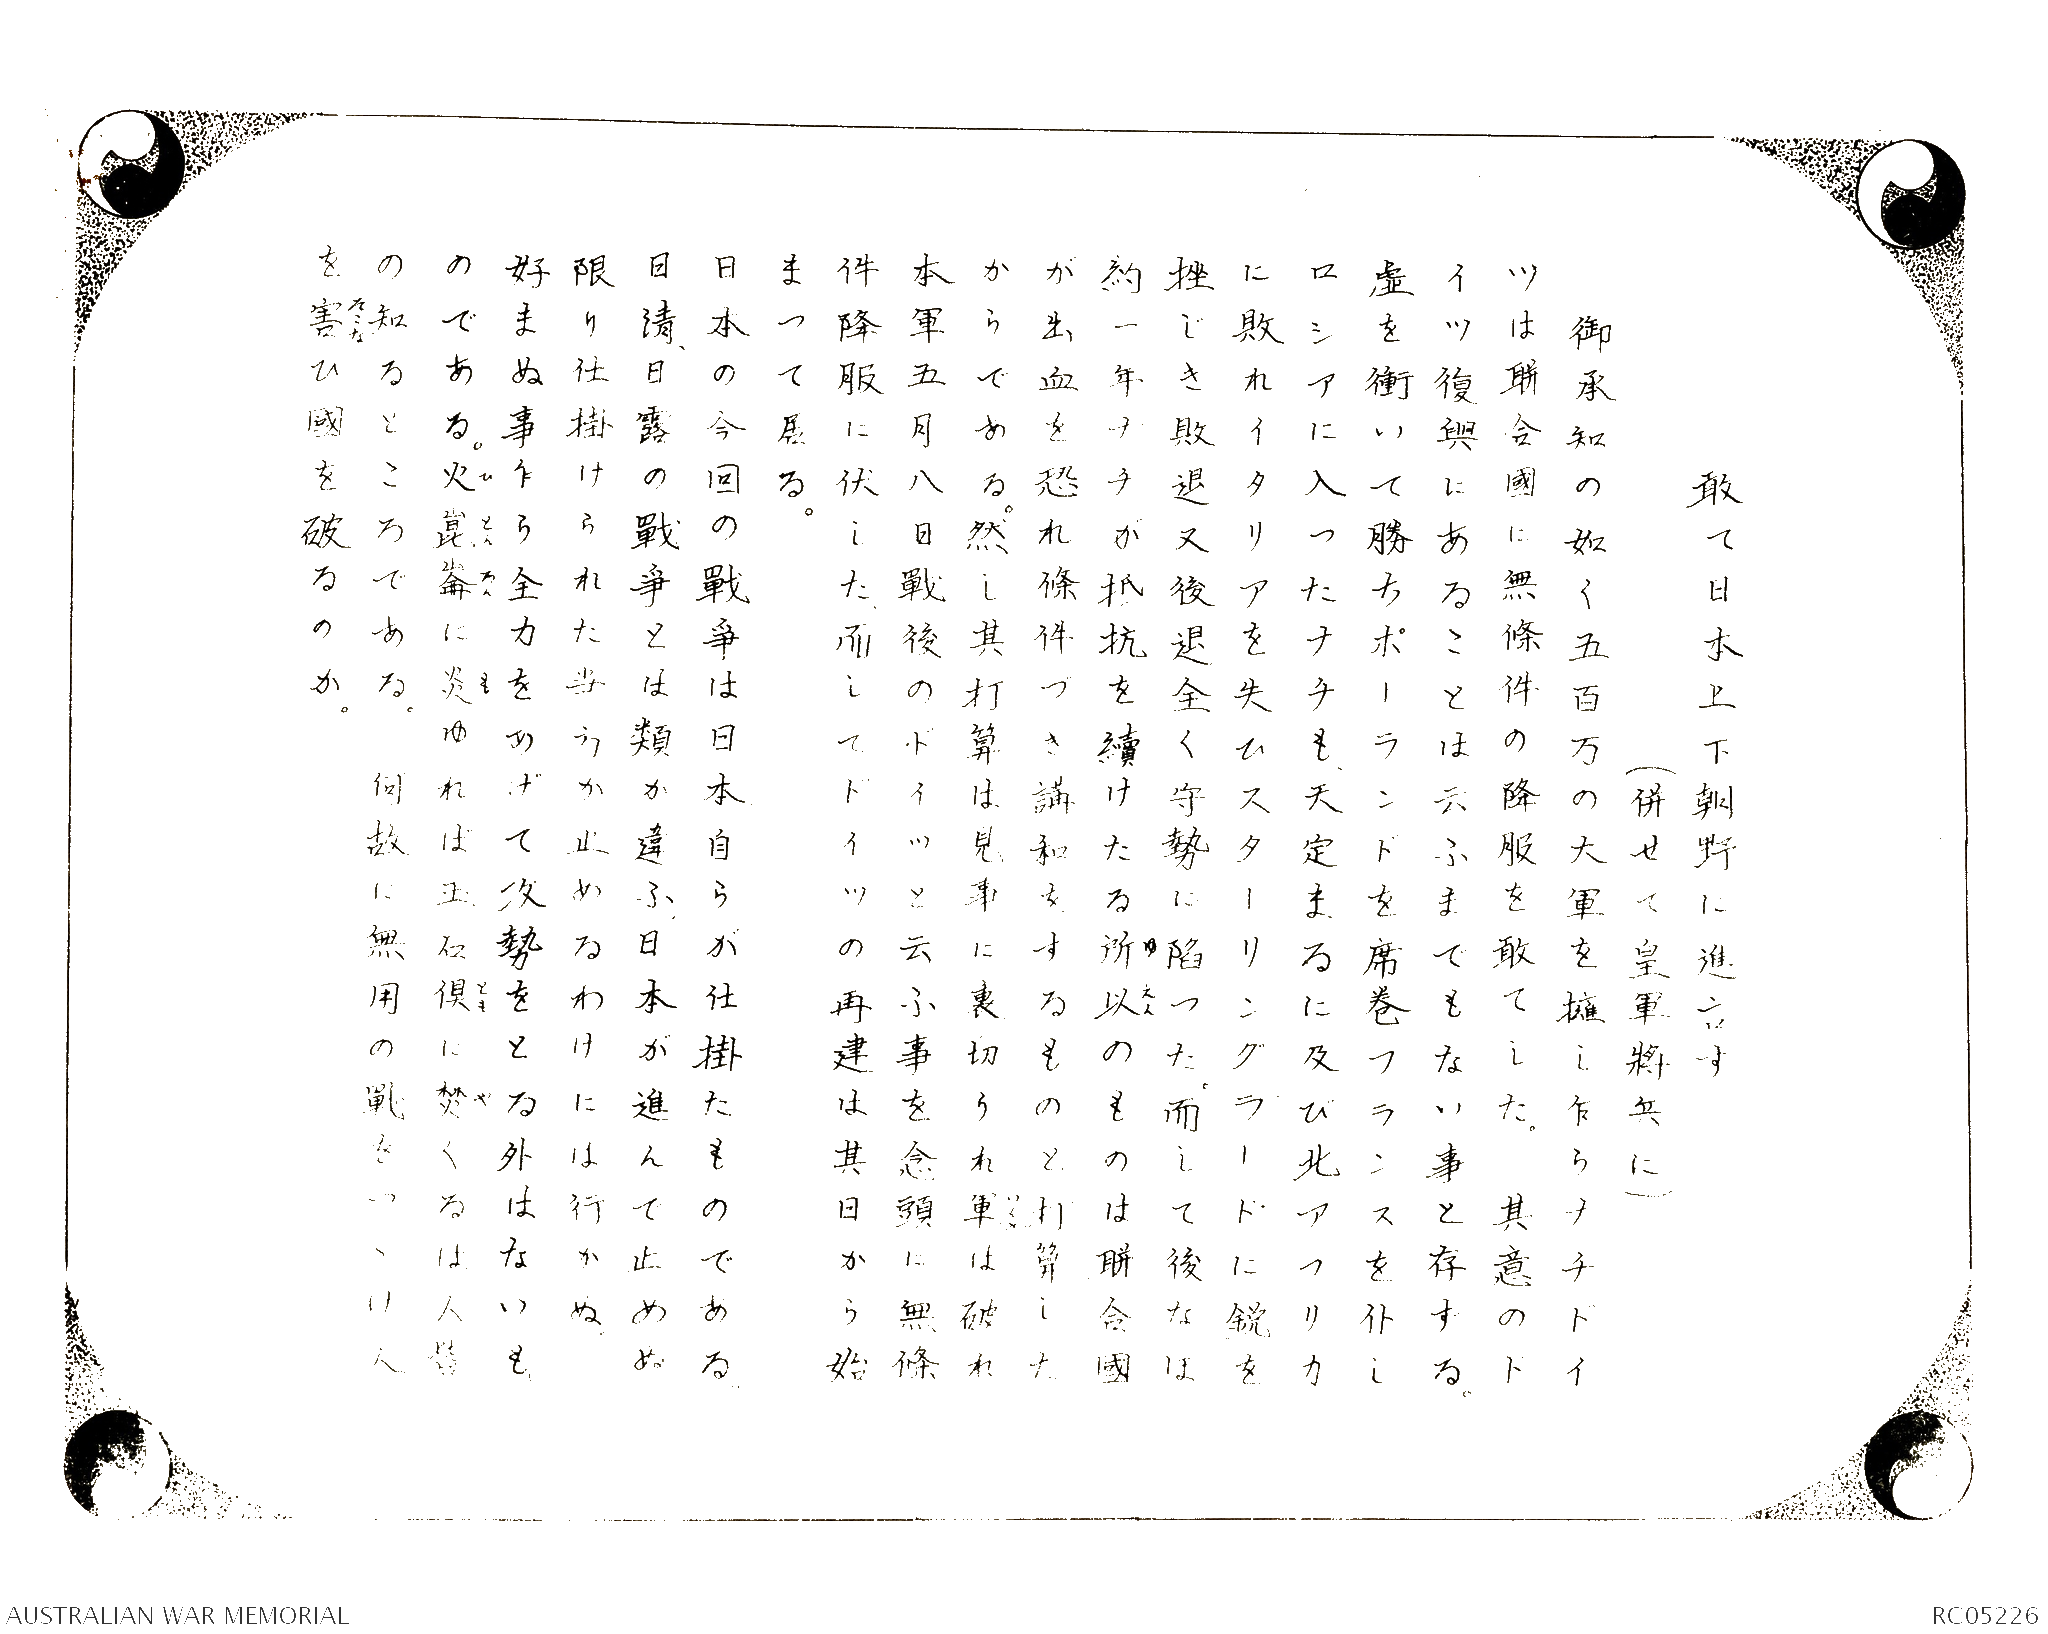 敢て日本上下朝野に進言す
(併せて皇軍將兵に)
御承知の如く五百万の大軍を擁し乍らナチドイ
ツは聯合國に無條件の降服を敢てした。其意のド
イツ復興にあることは云ふまでもない事と存する。
虚を衝いて勝ちポーランドを席巻フランスを仆し
ロシアに入つたナチも、天定まるに及び北アフリカ
に敗れイタリアを失ひスターリングラードに鋭を
挫じき敗退又後退全く守勢に陷つた。而して後なほ
約一年ナチが抵抗を續けたる所以のものは聯合國
ゆえん
が出血を恐れ條件づき講和をするものと打算した
からである。然し其打算は見事に裏切られ軍は破れ
いくさ
本軍五月八日戰後のドイツと云ふ事を念頭に無條
件降服に伏した、而してドイツの再建は其日から始
まつて居る。
日本の今回の戰爭は日本自らが仕掛たものである、
日清、日露の戰爭とは類か違ふ、日本が進んで止めぬ
限り仕掛けられた当うか止めるわけには行かぬ、
好まぬ事乍ら全力をあげて攻勢をとる外はないも
のである。火崑崙に炎ゆれば玉石倶に焚くるは人皆
ひこんろんもともや
の知るところである。何故に無用の戰をつゝけ人
を害ひ國を破るのか。
そこな
AUSTRALIAN WAR MEMORIAL
RC05226